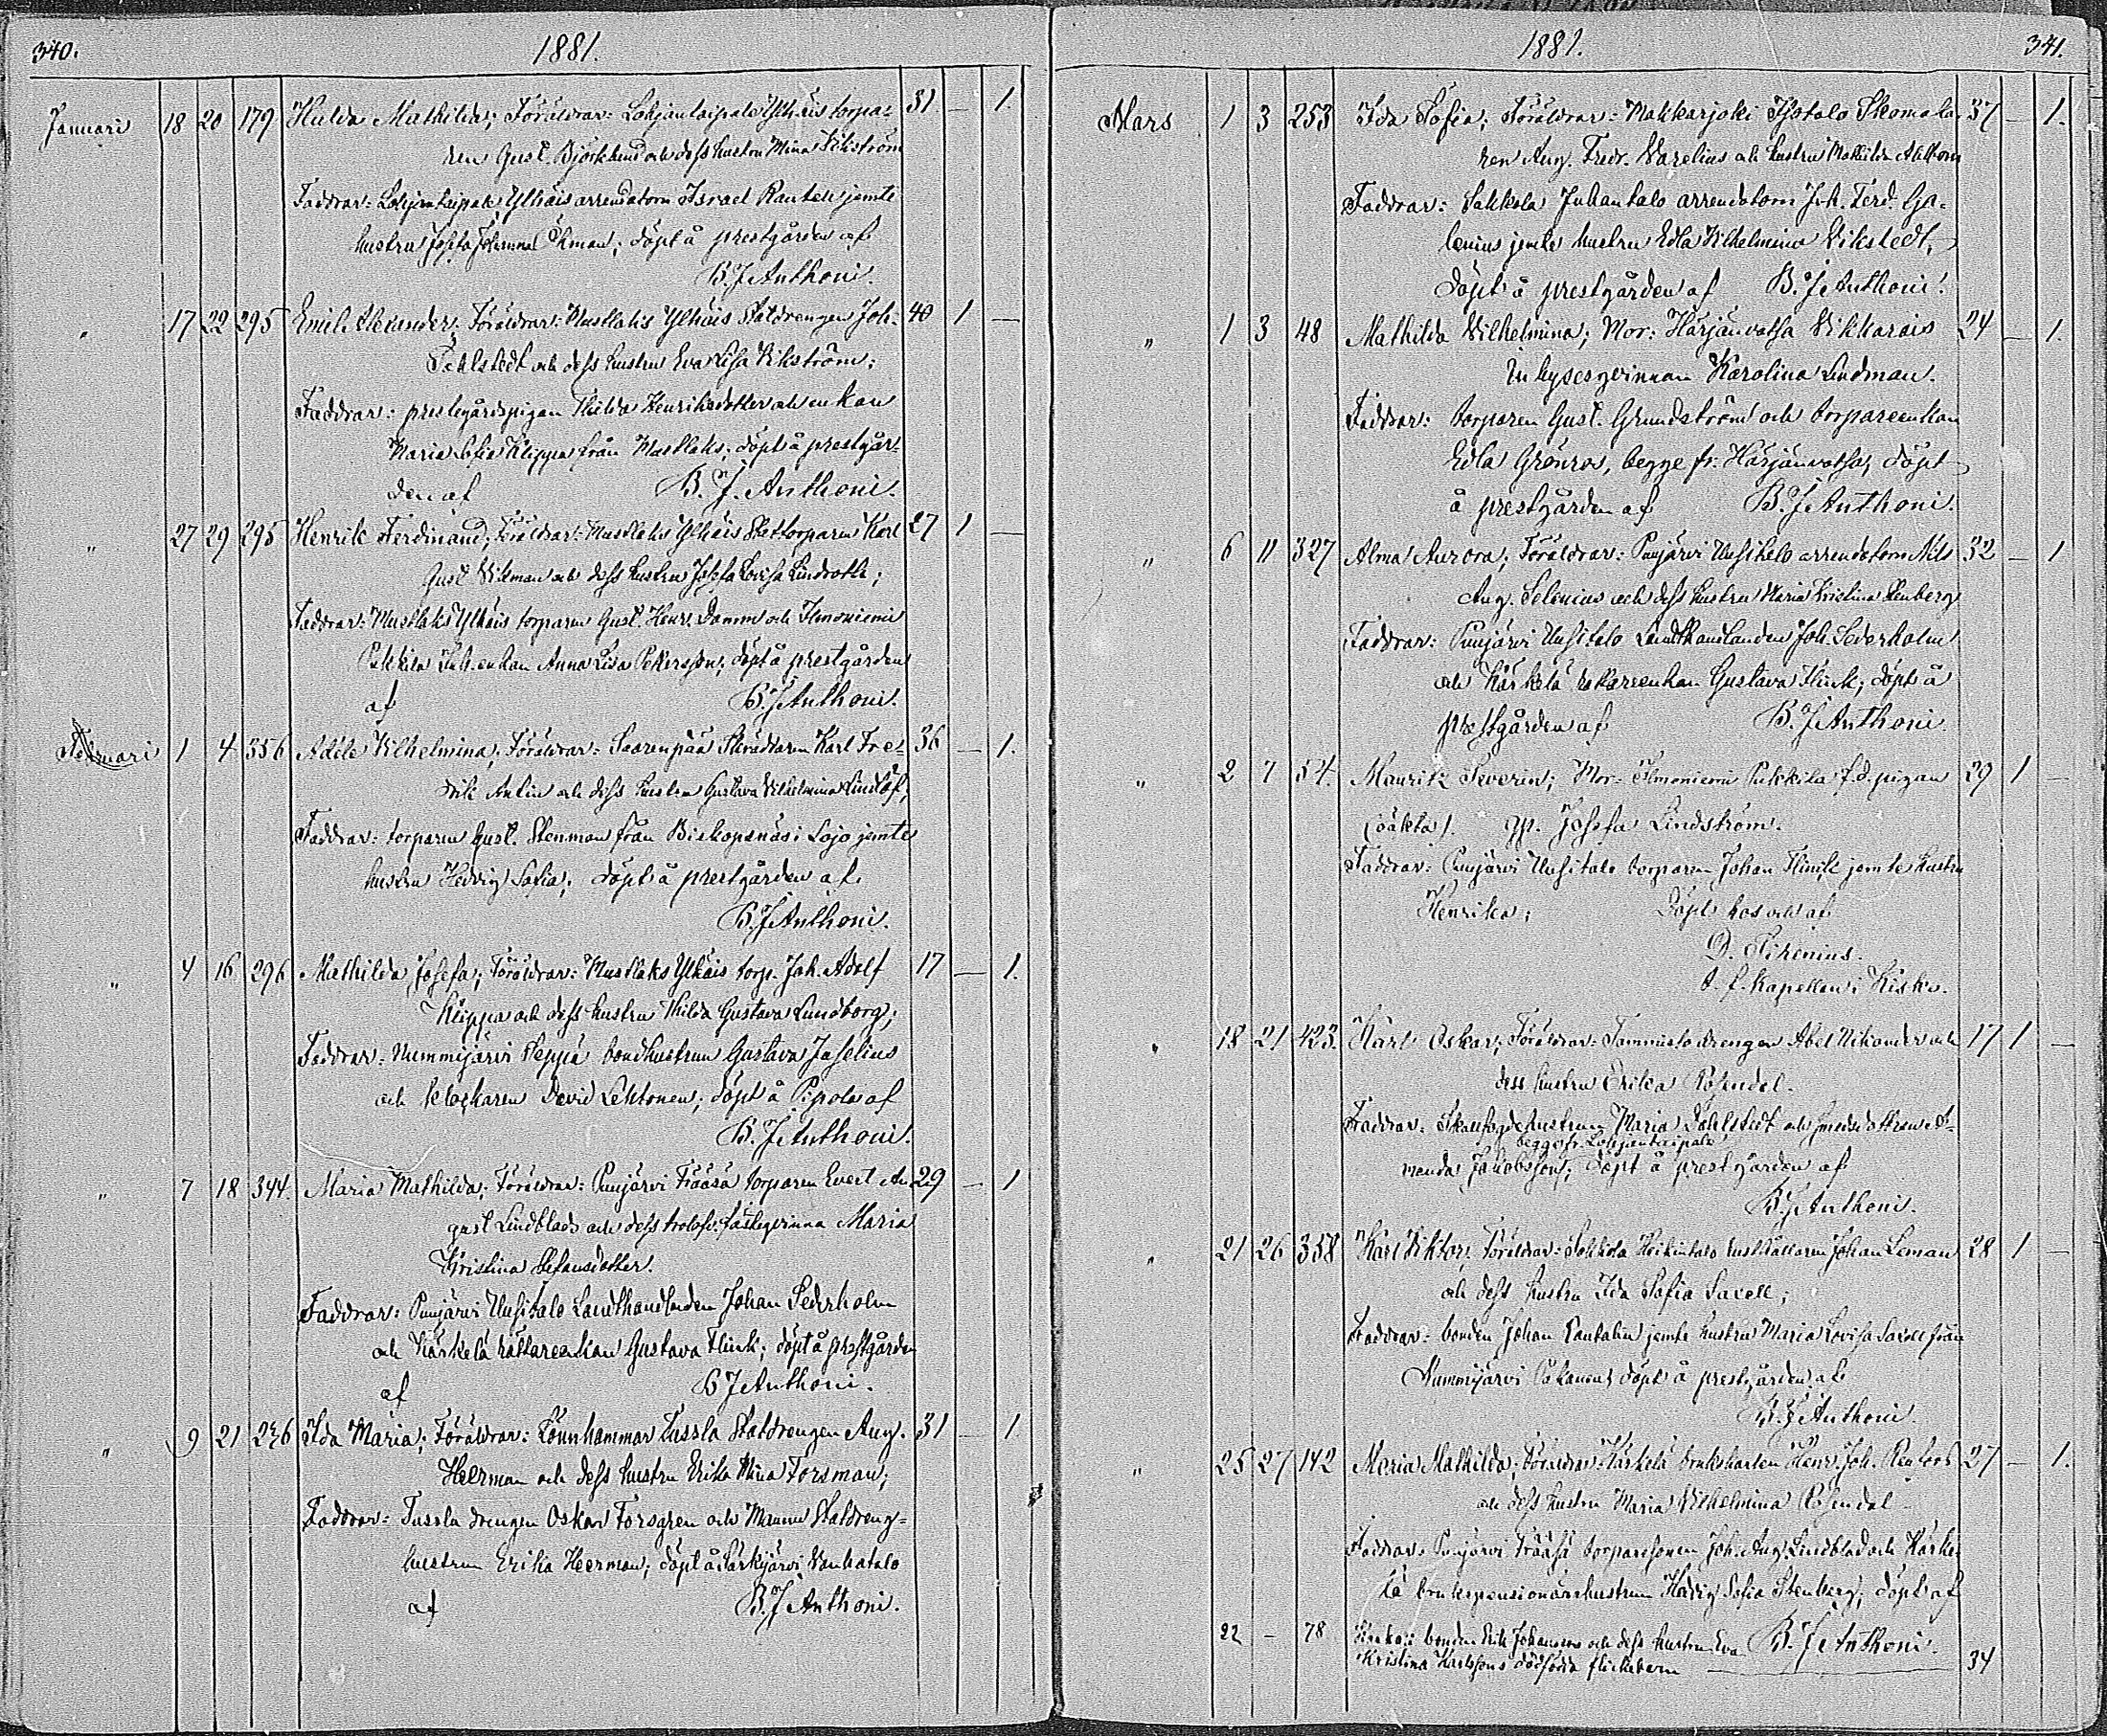 340.
1881.
Januari 18 20 179 Hulda Mathilda; Föräldrar: Lohjantaipale Ylhäis torpa- 31 — 1.
ren Gust. Björklund och dess hustru Mina Vikström
Faddrar: Lohjantaipale Ylhäis arrendatorn Israel Rautell jemte
hustru Josefa Johanna Öhman; döpt å prestgården af
B. J. Anthoni.
" 17 22 295 Emil Alexander; Föräldrar: Mustlaks Ylhäis Statdrengen Joh. 40 1 —
Sahlstedt och dess hustru Eva Lisa Vikström;
Faddrar: prestegårdspigan Hilda Henriksdotter och enkan
Maria Sofia Klippa från Mustlaks; döpt å prestgår-
den af B. J. Anthoni.
" 27 29 295 Henrik Ferdinand; Föräldrar: Mustlaks Ylhäis Stattorparen Karl 27 1 —
Gust. Vikman och dess hustru Josefa Lovisa Lindroth;
Faddrar: Mustlaks Ylhäis torparen Gust. Henr. Damm och Ilmoniemi
Pukkila Inh.enkan Anna Lisa Petersson; döpt å prestgården
af B. J. Anthoni.
Februari 1 4 356 Adéle Vilhelmina; Föräldrar: Saarenpää Skräddaren Karl Fre- 36 — 1.
drik Anlin och dess hustru Gustava Vilhelmina Lindlöf;
Faddrar: torparen Gust. Stenman från Biskopsnäs i Lojo jemte
hustru Hedvig Sofia; döpt å prestgården af
B. J. Anthoni.
" 4 16 296 Mathilda Josefa; Föräldrar: Mustlaks Ylhäis torp. Joh. Adolf 17 — 1.
Klippa och dess hustru Hilda Gustava Lundborg;
Faddrar: Nummijärvi Seppä bondhustrun Gustava Juselius
och klockaren David Lehtonen; döpt å Pipola af
B. J. Anthoni.
" 7 18 344. Maria Mathilda; Föräldrar: Punjärvi Trääsä torparen Evert Au- 29 — 1
gust Lindblad och dess trolof. fästeqvinna Maria
Kristina Stefansdotter.
Faddrar: Punjärvi Uusitalo Landthandlanden Johan Sederholm
och Kärkelä rättareenkan Gustava Flink; döpt å prestgården
af B. J. Anthoni.
" 9 21 236 Ida Maria; Föräldrar: Lönnhammar Tussla Statdrengen Aug. 31 — 1
Heerman och dess hustru Erika Mina Forsman;
Faddrar: Tussla drengen Oskar Forsgren och Mannu Statdreng-
hustrun Erika Heerman; döpt å Särkijärvi Vanhatalo
af B. J. Anthoni.
1881.
341.
Mars 1 3 253 Ida Sofia; Föräldrar: Makkarjoki Isotalo Skomaka- 37 — 1.
ren Aug. Fredr. Varelius och hustru Mathilda Ahlbom
Faddrar: Sakkola Juhantalo arrendatorn Joh. Ferd. Ga-
lenius jemte hustru Edla Vilhelmina Vikstedt,
döpt å prestgården af B. J. Anthoni.
" 1 3 48 Mathilda Vilhelmina; Mor: Härjänvatsa Vikkarais 24 — 1.
Inhysesqvinnan Karolina Lindman.
Faddrar: torparen Gust. Grundström och torpareenkan
Edla Grönros, begge fr. Härjänvatsa; döpt
å prestgården af B. J. Anthoni.
" 6 11 327 Alma Aurora; Föräldrar: Punjärvi Uusitalo arrendatorn Nils 32 — 1
Aug. Selenius och dess hustru Maria Kristina Stenberg
Faddrar: Punjärvi Uusitalo Landthandlanden Joh. Sederholm
och Kärkelä rättareenkan Gustava Flink; döpt å
prestgården af B. J. Anthoni.
" 2 7 54. Maurits Severin; Mor: Ilmoniemi Pukkila f.d. pigan 29 1 —
(oäkta). Josefa Lindström.
Faddrar: Punjärvi Uusitalo torparen Johan Flink jemte hustru
Henrika; Döpt hos och af
D. Pihrenius.
v. p. kapellan i Kisko.
" 18 21 423. Karl Oskar; Föräldrar: Tammisto drengen Abel Nikander och 17 1 —
dess hustru Erika Rosendal.
Faddrar: Skogsfogdehustrun Maria Sahlstedt och smedsdottren A-
begge fr. Lohjantaipale
manda Jakobsson; döpt å prestgården af
B. J. Anthoni.
" 21 26 358 Karl Viktor; Föräldrar: Sakkola Heikintalo rusthållaren Johan Leman 28 1 —
och dess hustru Ida Sofia Saxell;
Faddrar: bonden Johan Rantalin jemte hustru Maria Lovisa Saxell från
Nummijärvi döpt å prestgården af
B. J. Anthoni.
" 25 27 142 Maria Mathilda; Föräldrar: Kärkelä brukskarlen Henr. Joh. Renfors 27 — 1.
och dess hustru Maria Vilhelmina Rosendal
Faddrar: Punjärvi Trääsä torparesonen Joh. Aug. Lindblad och Kärke-
lä brukspensionärshustrun Hedvig Sofia Stenberg; döpt af
22 — 78 bonden Erik Johansson och dess hustru Eva B. J. Anthoni.
Kristina Karlssons dödfödda flickebarn — 34